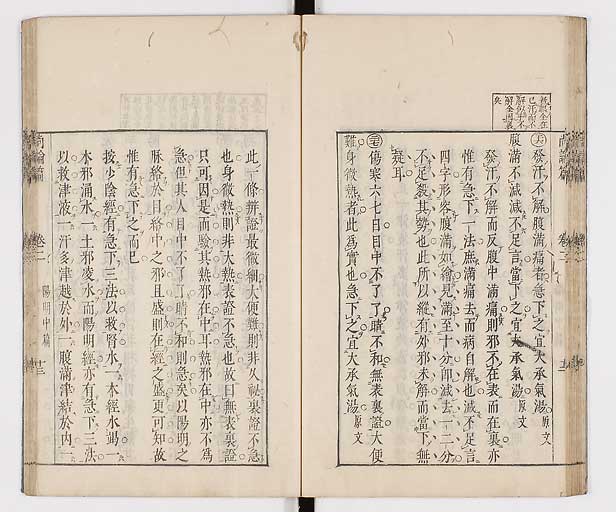 發汗不解腹滿痛者急下之宜大承氣湯原文
腹滿不減減不足言當下之宜大承氣湯原文
發汗不解而反腹中滿痛則邪不在表而在裏亦
惟有急下一法庶滿痛去而病自解也減不足言
四字形容腹滿如繪見滿至十分卽減去一二分
不足殺其勢也此所以縱有外邪未解而當下無
疑耳
傷寒六七日目中不了了睛不和無表裏證大便
難身微熱者此爲實也急下之宜大承氣湯原文
此一條辨證最微細大便難則非久祕裏證不急
也身微熱則非大熱表證不急也故曰無表裏證
只可因是而驗其熱邪在中耳熱邪在中亦不爲
急但其人目中不了了睛不和則急矣以陽明之
脈絡於目絡中之邪且盛則在經之盛更可知故
惟有急下之而已
按少陰經有急下三法以救腎水一本經水竭一
木邪涌水一土邪凌水而陽明經亦有急下三法
以救津液一汗多津越於外一腹滿津結於內一
尚論篇 卷二 陽明中篇 十三